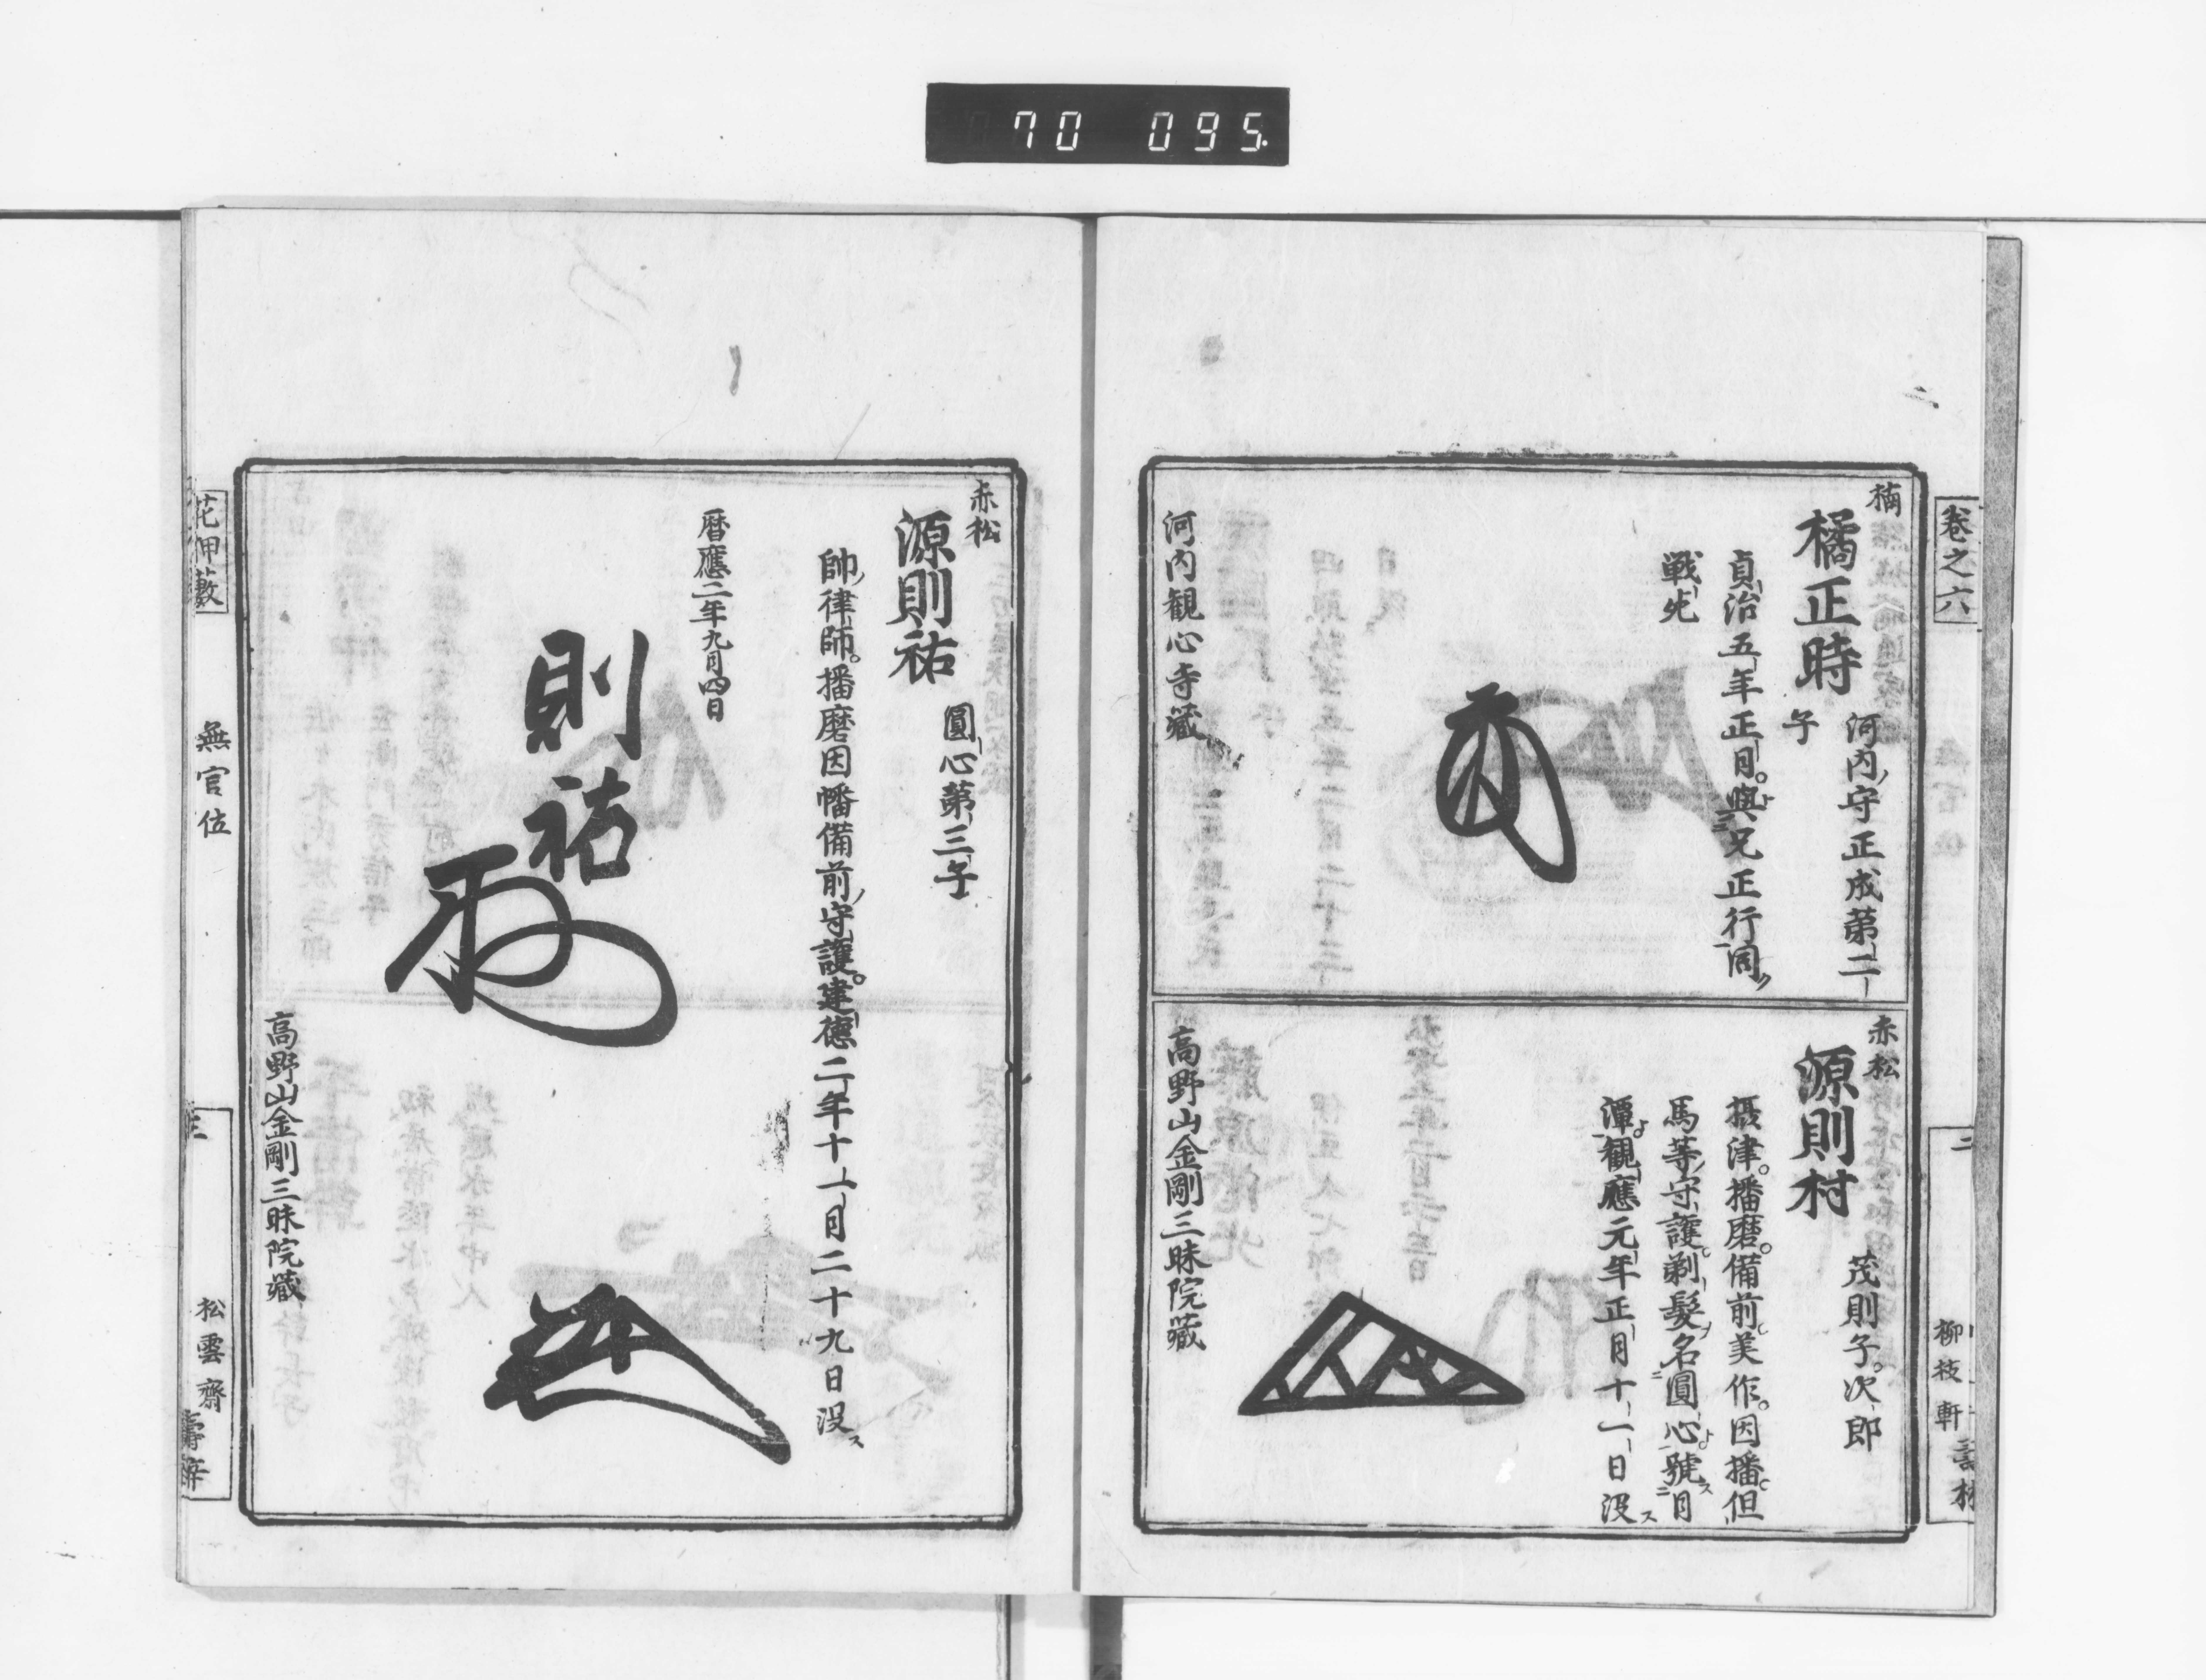 70 095.
卷之六
二
柳枝軒
楠
橘正時
河内守正成第二
子
貞治五年正月。與兄正行同
戦死
河内観心寺藏
赤松
源則村
茂則子。次郎
摂津。播磨。備前美作。因播。但
馬等守護。剃髪名圓心號月
潭観應元年正月十一日没ス
高野山金剛三昧院藏
赤松
源則祐
圓心第三子
帥律師。播磨因幡備前守護。建德二年十一月二十九日没ス
暦應二年九月四日
則祐
高野山金剛三昧院藏
花押藪
無官位
松雲齋